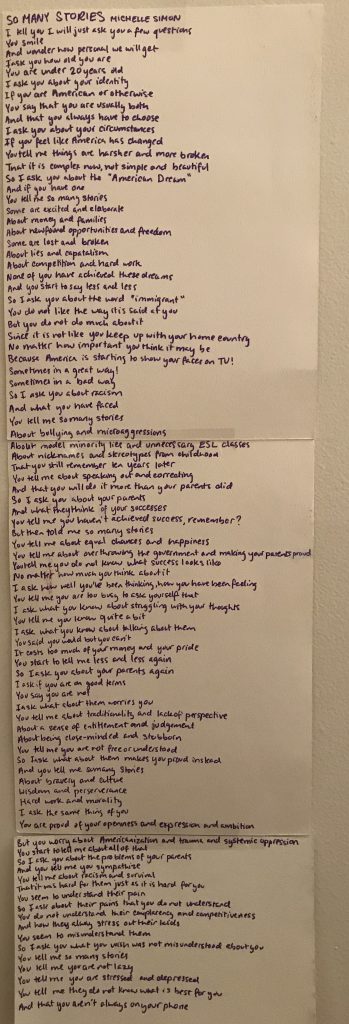 SO MANY STORIES MICHELLE SIMON
I tell you I will just ask you a few questions
You smile
And wonder how personal we will get
I ask you how old you are
You are under 20 years old
I ask you about your identity
If you are American or otherwise
You say that you are usually both
And that you always have to choose
I ask you about your circumstances
If you feel like America has changed
You tell me things are harsher and more broken
That it is complex now, not simple and beautiful
So I ask you about the "American Dream"
And if you have one
You tell me so many stories
Some are excited and elaborate
About money and families
About newfound opportunities and freedom
Some are lost and broken
About lies and capatalism
About competition and hard work
None of you have achieved these dreams
And you start to say less and less
So I ask you about the word "immigrant"
You do not like the way it is said at you
But you do not do much about it
Since it is not like you keep up with your home country
No matter how important you think it may be
Because America is starting to show your faces on TV!
Sometimes in a great way!
Sometimes in a bad way
So I ask you about racism
And what you have faced
You tell me so many stories
About bullying and microaggressions
About model minority lies and unnecessary ESL classes
About nicknames and stereotypes from childhood
That you still remember ten years later
You tell me about speaking out and correcting
And that you will do it more than your parents did
So I ask you about your parents
And what they think of your successes
You tell me you haven't achieved success, remember?
But then told me so many stories
You tell me about equal chances and happiness
You tell me about overthrowing the government and making your parents proud
You tell me you do not know what success looks like
No matter how much you think about it
I ask how well you've been thinking, how you have been feeling
You tell me you are too busy to ask yourself that
I ask what you know about struggling with your thoughts
You tell me you know quite a bit
I ask what you know about talking about them
You said you would but you can't
It costs too much of your money and your pride
You start to tell me less and less again
So I ask you about your parents again
I ask if you are on good terms
You say you are not
I ask what about them worries you
You tell me about traditionality and lack of perspective
About a sense of entitlement and judgement
About being close-minded and stubborn
You tell me you are not free or understood
So I ask what about them makes you proud instead
And you tell me so many stories
About bravery and culture
Wisdom and perserverance
Hard work and morality
I ask the same thing of you
You are proud of your openness and expression and ambition
But you worry about Americanization and trauma and systemic oppression
You start to tell me about all of that
So I ask you about the problems of your parents
And you tell me you sympathize
You tell me about racism and survival
That it was hard for them just as it is hard for you
You seem to understand their pain
So I ask about their pains that you do not understand
You do not understand their complacency and competitiveness
And how they always stress out their kids
You seem to misunderstand them
So I ask you what you wish was not misunderstood about you
You tell me so many stories
You tell me you are not lazy
You tell me you are stressed and depressed
You tell me they do not know what is best for you
And that you aren't always on your phone